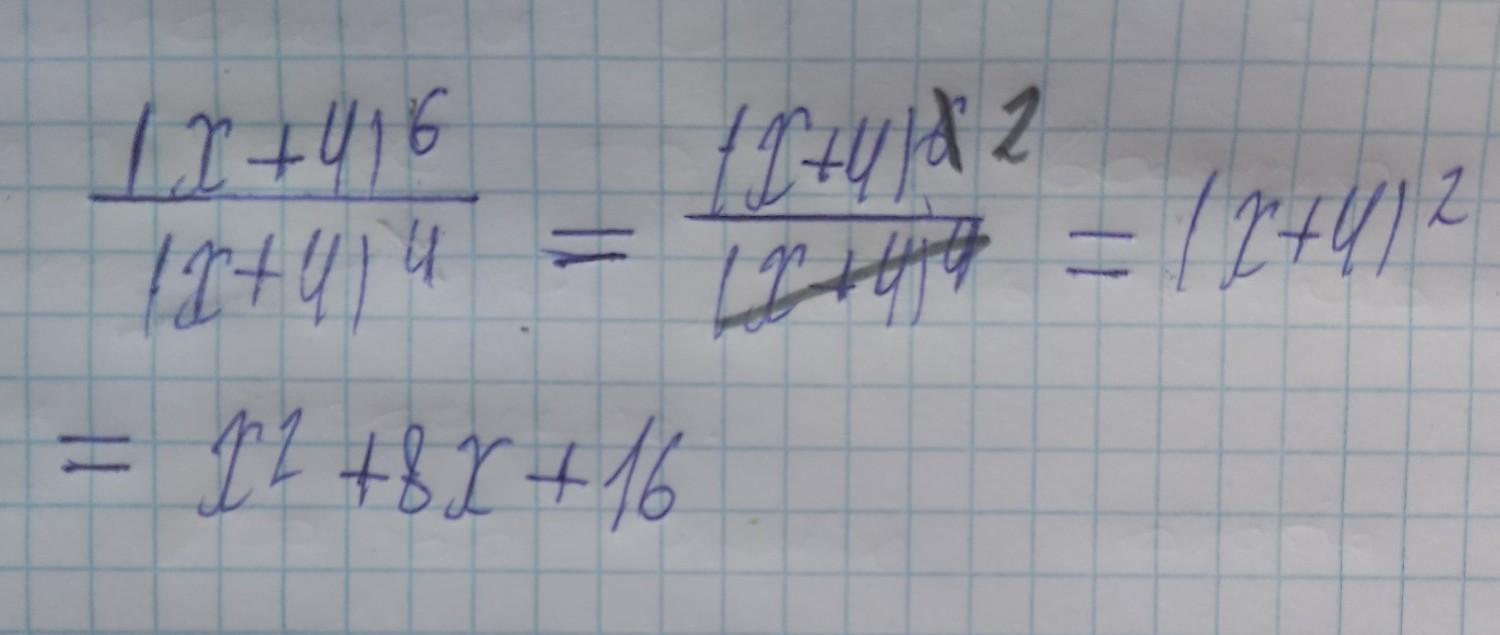 (x+4)^6/(x+4)^4 = (x+4)^6 2/(x+4)^4 = (x+4)^2
= x^2 +8x +16